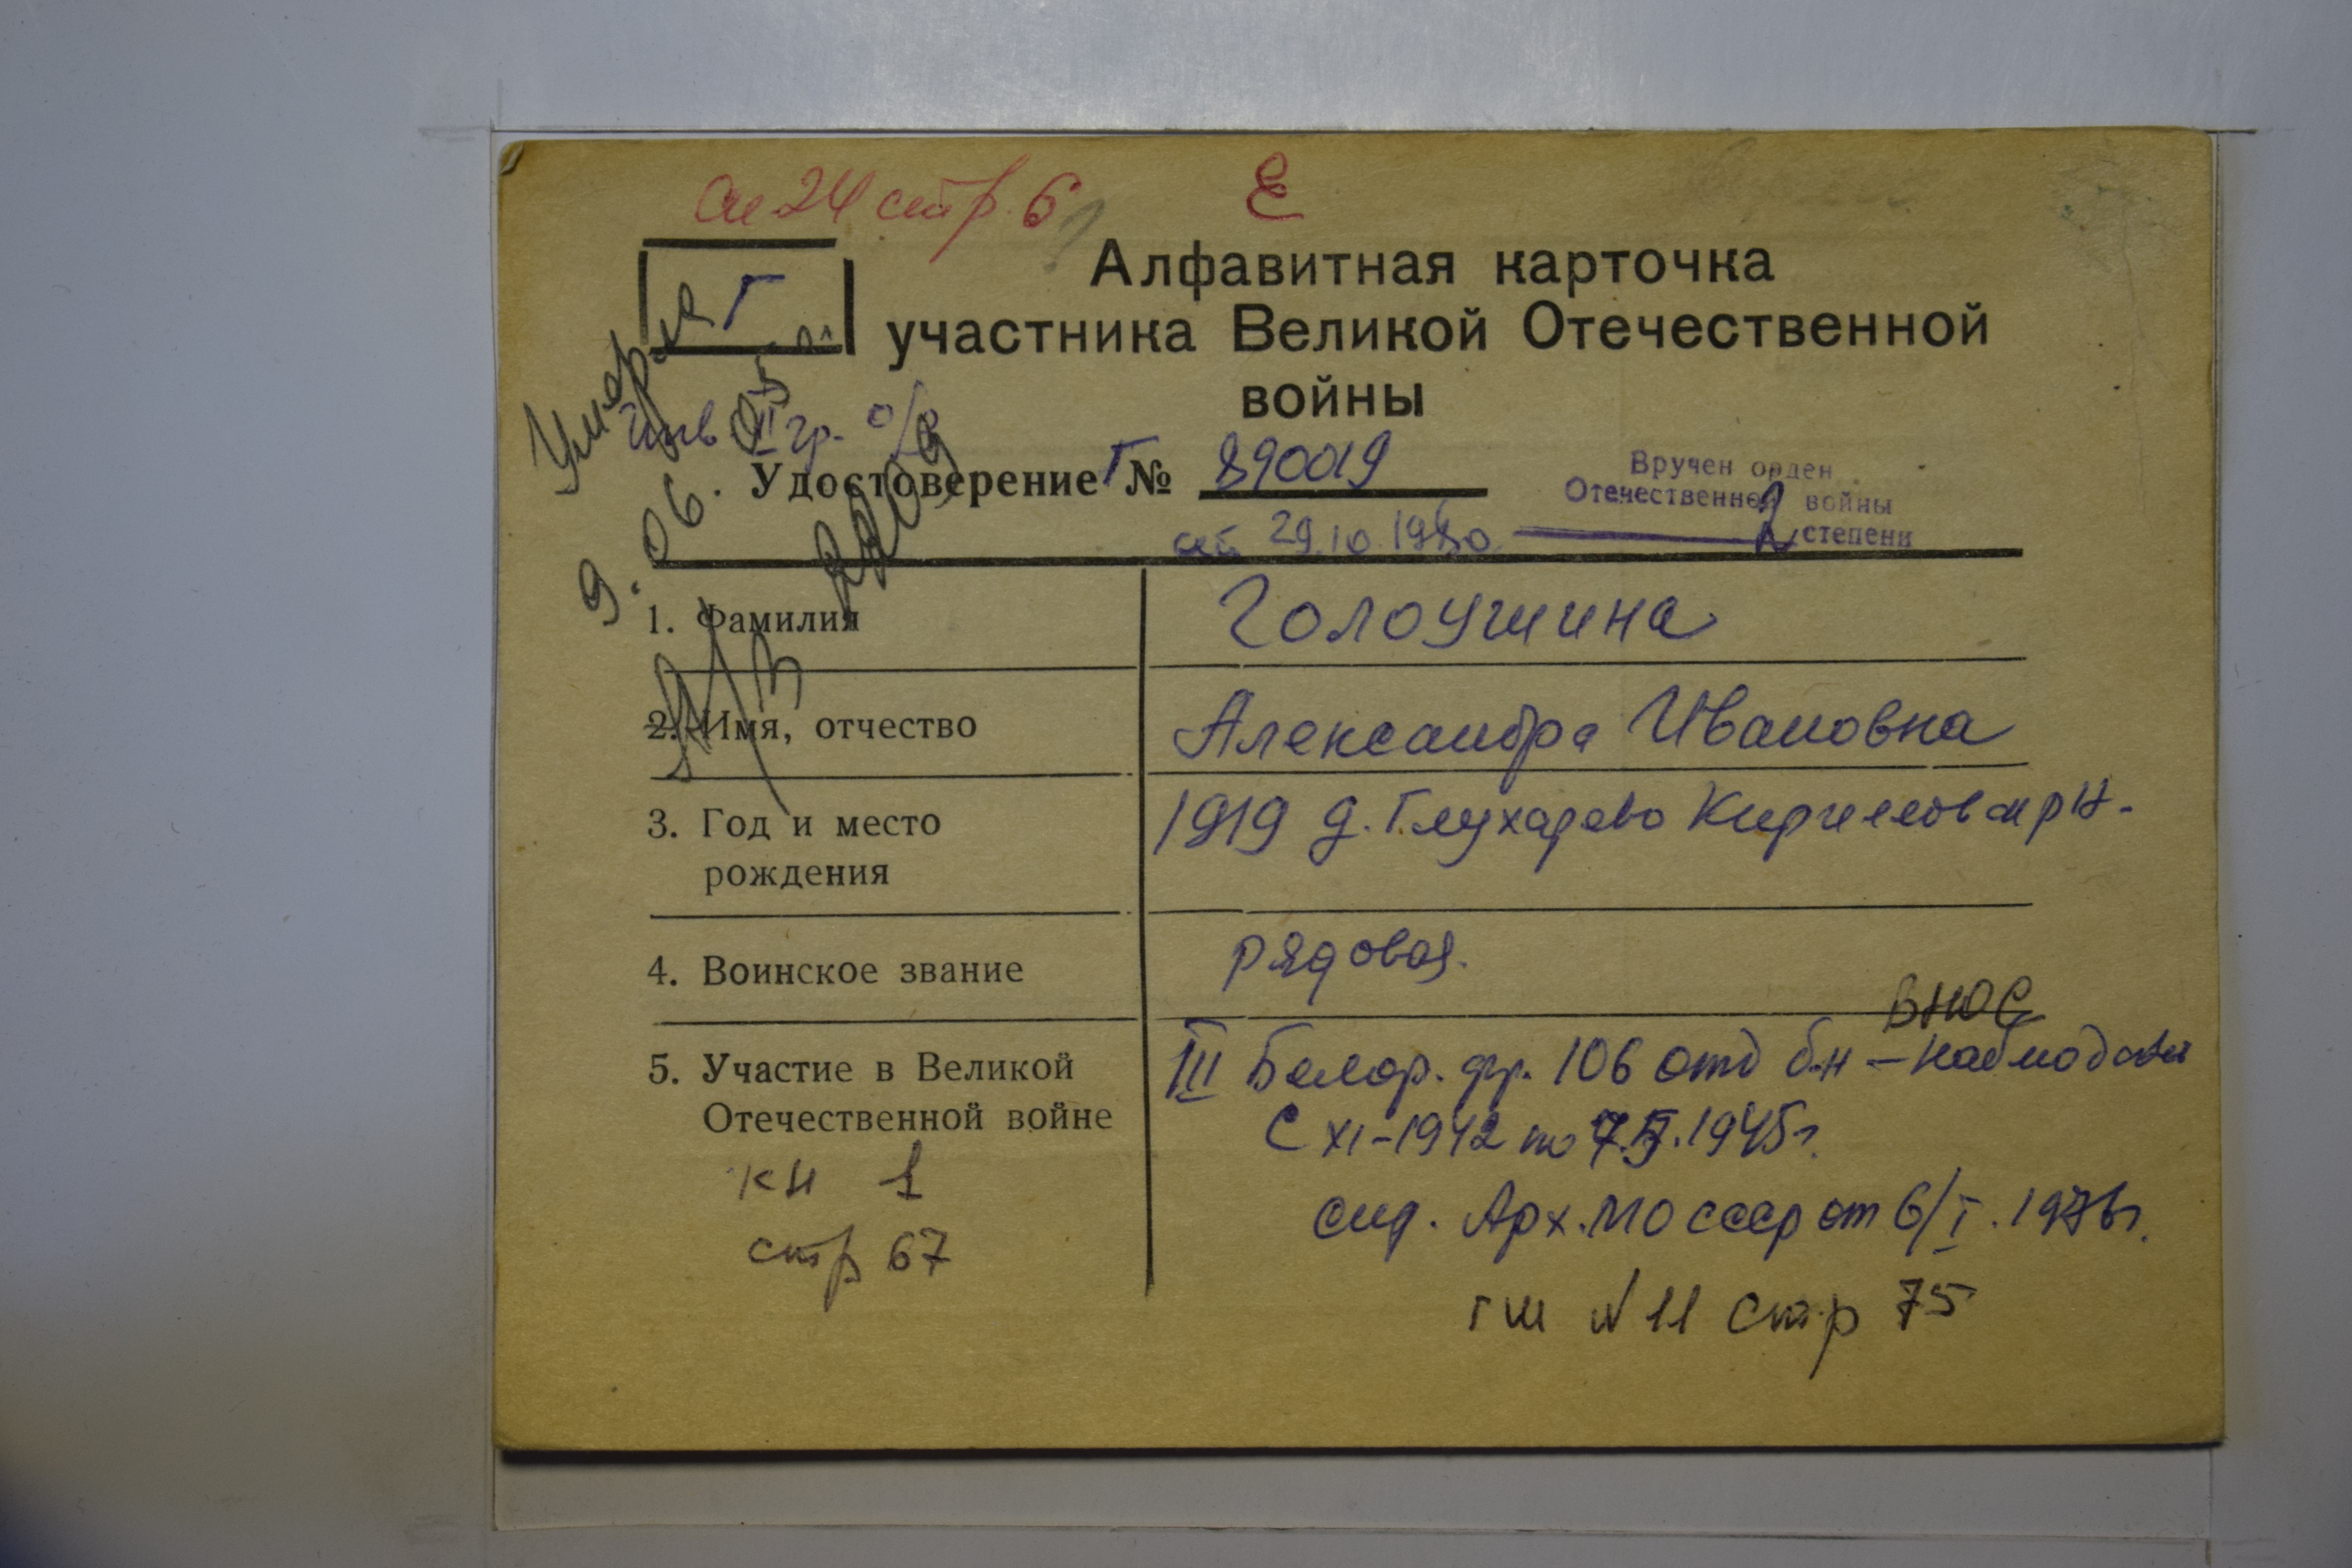 стр. 6 Е
Г
Алфавитная карточка
участника Великой Отечественной
войны
Умерла
9.06.
Инв II гр. о/з
Удостоверение Г № 890019
от 29.10.1980
Вручен орден
Отечественной войны
2 степени
1. Фамилия Голоушина
2. Имя, отчество Александра Ивановна
3. Год и место рождения 1919 д. Глухарево Кириллов рн.
4. Воинское звание рядовая.
ВНОС
5. Участие в Великой Отечественной войне III Белор. фр. 106 отд б-н – наблюдатель
С XI-1942 по 1945г.
Арх. МО СССР от 6/I. 1976г.
кн 1
стр 67
гш N 11 стр 75